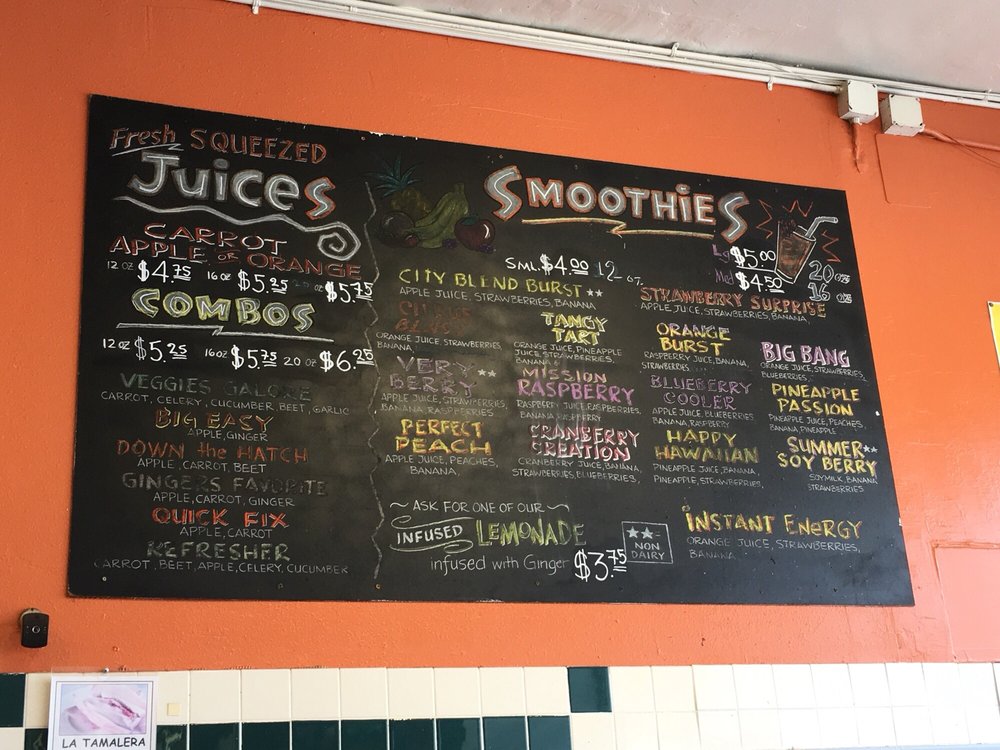 Fresh SQUEEZED
Juices
CARROT
APPLE or ORANGE
12 OZ $4.75 16 OZ $5.25 20 OZ $5.75
COMBOS
12 OZ $5.25 16 OZ $5.75 20 OZ $6.25
VEGGIES GALORE
CARROT, CELERY, CUCUMBER, BEET, GARLIC
BIG EASY
APPLE, GINGER
DOWN the HATCH
APPLE, CARROT, BEET
GINGERS FAVORITE
APPLE, CARROT, GINGER
QUICK FIX
APPLE, CARROT
REFRESHER
CARROT, BEET, APPLE, CELERY, CUCUMBER
SMOOTHIES
SML. $4.00 12 OZ.
Lg $5.00 20 OZS
Med $4.50 16 OZS
CITY BLEND BURST **
APPLE JUICE, STRAWBERRIES, BANANA
CITRUS
BLUS
ORANGE JUICE, STRAWBERRIES,
BANANA
VERY **
BERRY
APPLE JUICE, STRAWBERRIES
BANANA, RASPBERRIES
PERFECT
PEACH
APPLE JUICE, PEACHES,
BANANA,
TANGY
TART
ORANGE JUICE, PINEAPPLE
JUICE, STRAWBERRIES,
BANANA
MISSION
RASPBERRY
RASPBERRY JUICE, RASPBERRIES,
BANANA, RASPBERRY
CRANBERRY
CREATION
CRANBERRY JUICE, BANANA,
STRAWBERRIES, BLUEBERRIES,
STRAWBERRY SURPRISE
APPLE JUICE, STRAWBERRIES, BANANA,
ORANGE
BURST
RASPBERRY JUICE, BANANA,
STRAWBERRIES,
BLUEBERRY
COOLER
APPLE JUICE, BLUEBERRIES
BANANA, RASPBERRY
HAPPY
HAWAIIAN
PINEAPPLE JUICE, BANANA,
PINEAPPLE, STRAWBERRIES,
BIG BANG
ORANGE JUICE, STRAWBERRIES,
BLUEBERRIES,
PINEAPPLE
PASSION
PINEAPPLE JUICE, PEACHES,
BANANA, PINEAPPLE
SUMMER **
SOY BERRY
SOYMILK, BANANA
STRAWBERRIES
~ ASK FOR ONE OF OUR ~
INFUSED LEMONADE
infused with Ginger $3.75
** NON
DAIRY
INSTANT ENERGY
ORANGE JUICE, STRAWBERRIES,
BANANA
LA TAMALERA